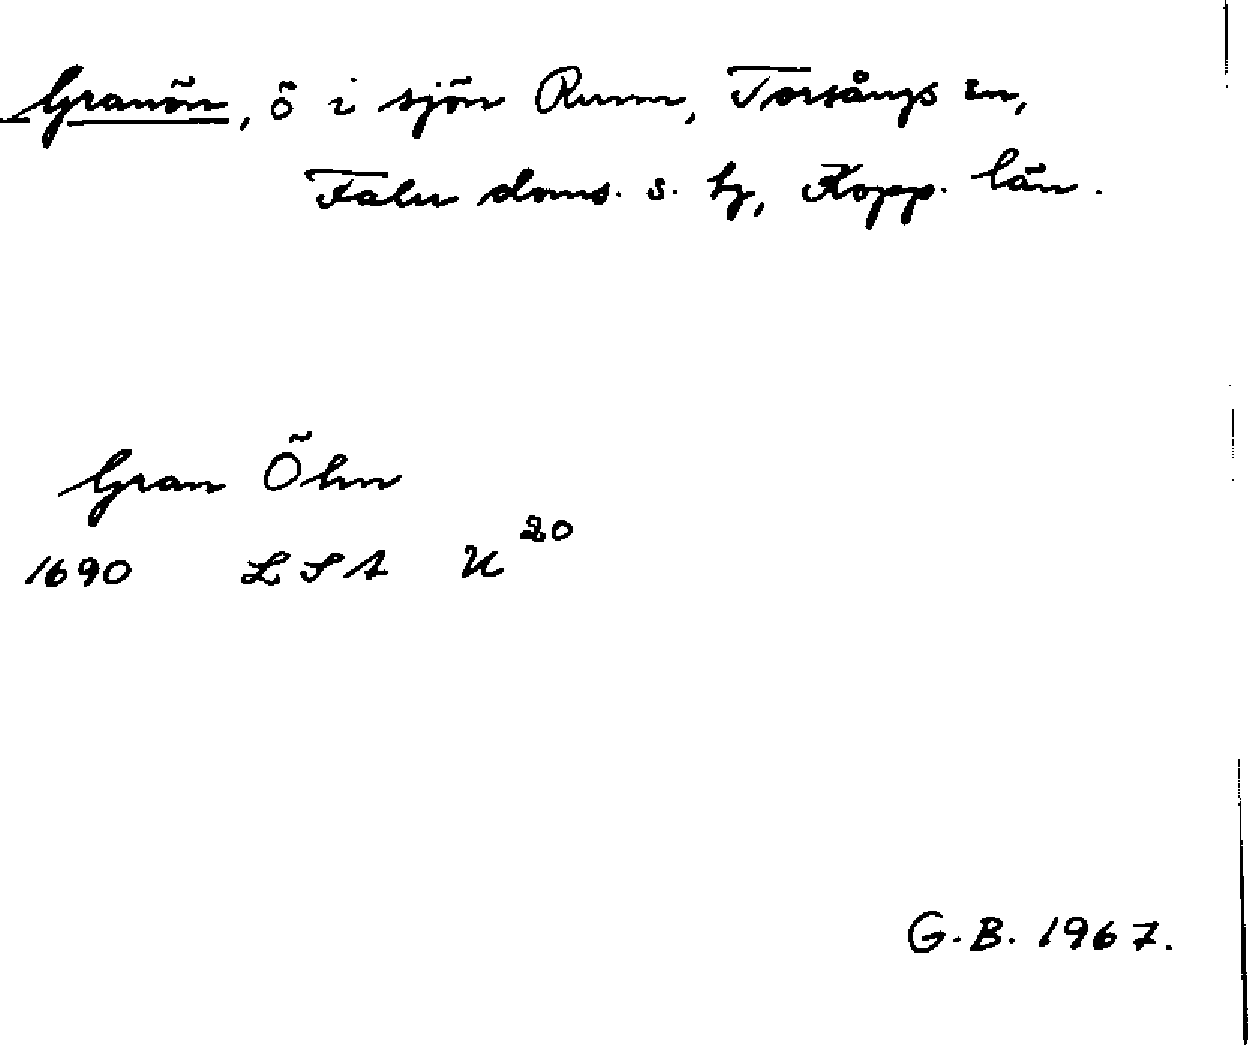 Granön, ö i sjön Runn, Torsångs sn,
Falu doms. s. tg, Kopp. län.
Gran Öhn
1690 LSA U 20
G.B. 1967.